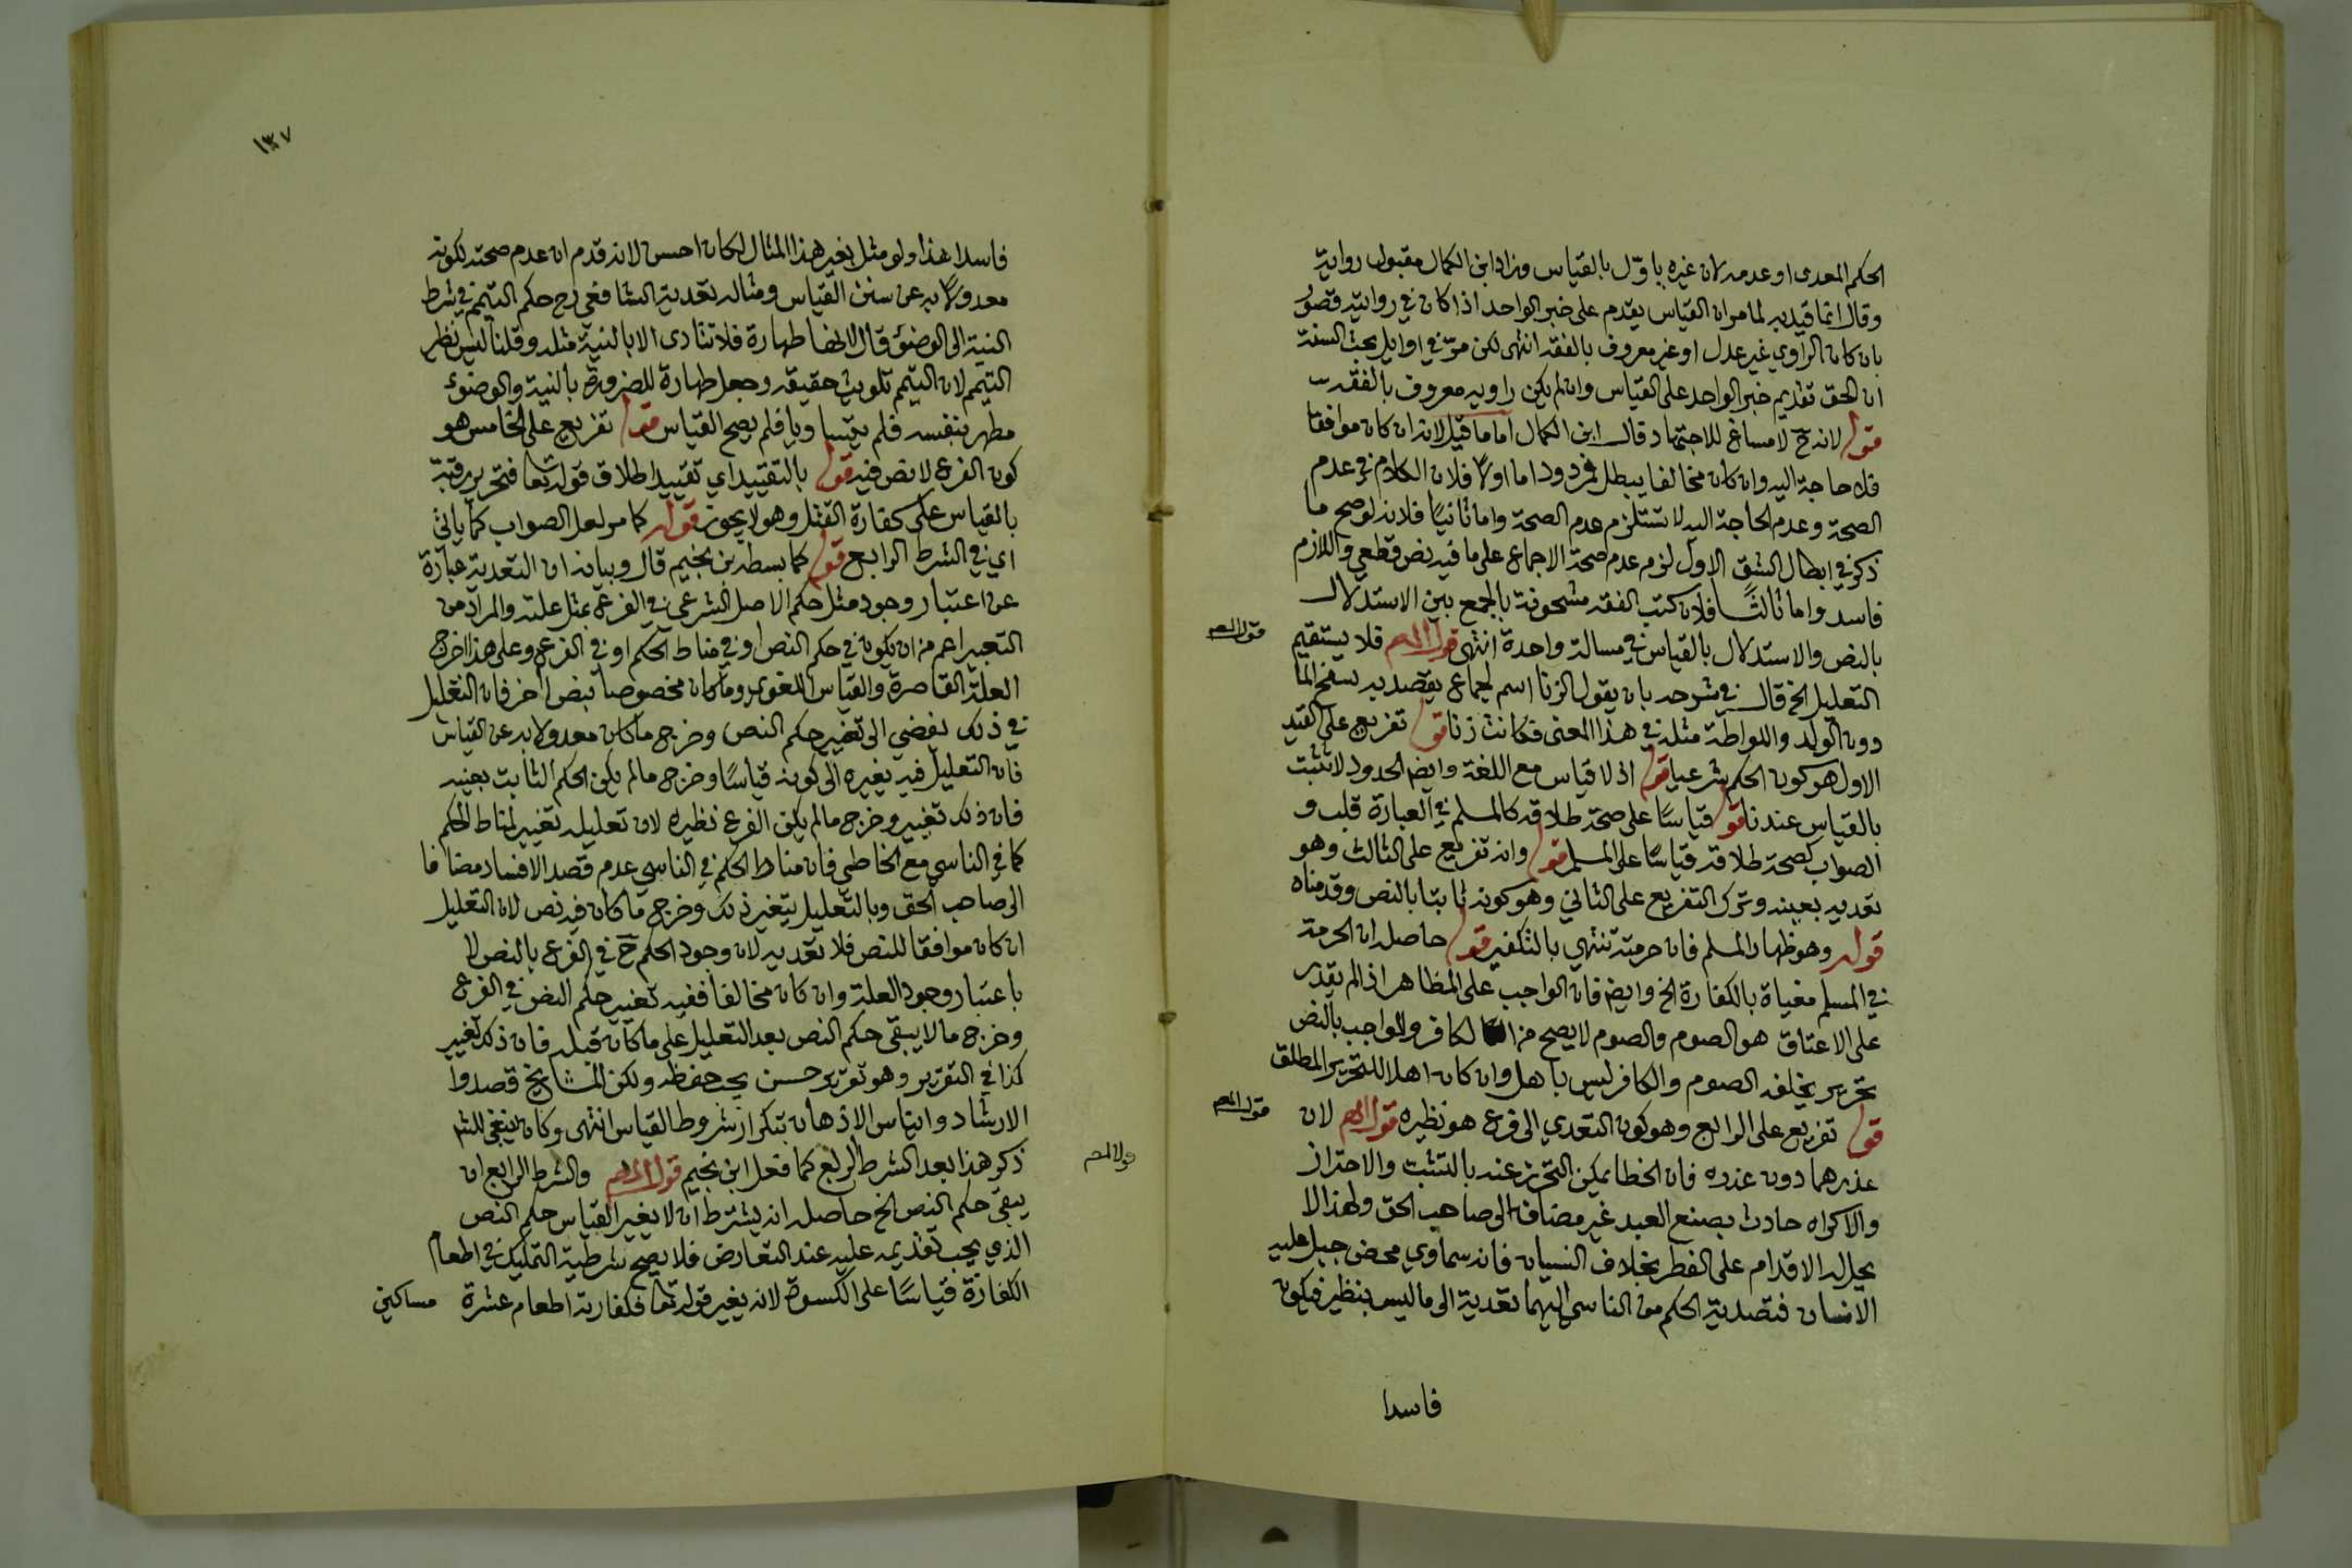 الحكم المعدى او عدمه لان غيره ياوّل بالقياس وزاد ابن الكمال مقبول رواية
وقال انما قيد به لما مر ان القياس يقدم على خبر الواحد اذا كان في روايته قصور
بان كان الراوي غير عدل او غير معروف بالفقه انتهى لكن مرّ في اوايل بحث السنة
ان الحق تقديم خبر الواحد على القياس وان لم يكن راويه معروف بالفقه
قوله لانه ح لا مساغ للاجتهاد قال ابن الكمال اما ما قيل لانه ان كان موافقا
فلا حاجة اليه وان كان مخالفا يبطل فمردود اما اولاً فلان الكلام في عدم
الصحة وعدم الحاجة اليه لا تستلزم عدم الصحة واما ثانياً فلانه لو صح ما
ذكر في ابطال الشق الاول لزم عدم صحة الاجماع على ما فيه نص قطعي واللازم
فاسد واما ثالثاً فلان كتب الفقه مشحونة بالجمع بين الاستدلال
بالنص والاستدلال بالقياس في مسالة واحدة انتهى قول المص فلا يستقيم
قول المص
التعليل الخ قال في شرحه بان يقول الزنا اسم لجماع يقصد به سفح الما
دون الولد واللواطة مثله في هذا المعنى فكانت زنا قوله تفريع على القيد
الاول هو كون الحكم شرعيا قوله اذ لا قياس مع اللغة وايضا الحدود لا تثبت
بالقياس عندنا قوله قياسًا على صحة طلاقه كالمسلم في العبارة قلب و
الصواب لصحة طلاقه قياسًا على المسلم قوله وانه تفريع على الثالث وهو
تعديه بعينه وترك التفريع على الثاني وهو كونه ثابتا بالنص وقدمناه
قوله وهو ظهار المسلم فان حرمته تنتهي بالتكفير قوله حاصله ان الحرمة
في المسلم مغياة بالكفارة الخ وايضا فان الواجب على المظاهر اذا لم يقدر
على الاعتاق هو الصوم والصوم لا يصح من الكافر والواجب بالنص
تحرير يخلفه الصوم والكافر ليس باهل وان كان اهلا للتحرير المطلق
قوله تفريع على الرابع وهو كون التعدي الى فرع هو نظيره قول المص لان
قول المص
عذرهما دون عذره فان الخطا يمكن التحرز عنه بالتثبت والاحتراز
والاكراه حادث بصنع العبد غير مضاف الى صاحب الحق ولهذا لا
يحل له الاقدام على الفطر بخلاف النسيان فانه سماوي محض جبل عليه
الانسان فتصدية الحكم من الناسي اليهما تعدية الى ما ليس بنظير فيكون
فاسدا
١٣٧
فاسدا هذا ولو مثل بغير هذا المثال لكان احسن لانه قدم ان عدم صحته لكونه
معدولاً به عن سنن القياس ومثاله تعدية الشافعي رح حكم التيمم في شرط
النية الى الوضوء قال لانها طهارة فلا تتادى الا بالنية مثله وقلنا ليس نظير
التيمم لان التيمم تلويث حقيقة وجعل طهارة للضرورة بالنية والوضوء
مطهر بنفسه فلم يتساويا فلم يصح القياس قوله تفريع على الخامس هو
كون الفرع لا نص فيه قوله بالتقييد اي تقييد اطلاق قوله تعا فتحرير رقبة
بالقياس على كفارة القتل وهو لا يجوز قوله كما مر لعل الصواب كما ياتي
اي في الشرط الرابع قوله كما بسطه بن نجيم قال وبيانه ان التعدية عبارة
عن اعتبار وجود مثل حكم الاصل الشرعي في الفرع بمثل علته والمراد من
التعبير اعم من ان يكون في حكم النص او في مناط الحكم او في الفرع وعلى هذا خرج
العلة القاصرة والقياس اللغوي وما كان مخصوصا بنص اخر فان التعليل
في ذلك يفضي الى تغيير حكم النص وخرج ما كان معدولا به عن القياس
فان التعليل فيه يغيره الى كونه قياسًا وخرج ما لم يكن الحكم الثابت بعينه
فان ذلك تغيير وخرج ما لم يكن الفرع نظيره لان تعليله تغيير لمناط الحكم
كما في الناسي مع الخاطي فان مناط الحكم في الناسي عدم قصد الافساد مضافا
الى صاحب الحق وبالتعليل يتغير ذلك وخرج ما كان فيه نص لان التعليل
ان كان موافقا للنص فلا تعديه لان وجود الحكم ح في الفرع بالنص لا
باعتبار وجود العلة وان كان مخالفا ففيه تغيير حكم النص في الفرع
وخرج ما لا يبقى حكم النص بعد التعليل على ما كان قبله فان ذلك تغيير
كذا في التقرير وهو تقرير حسن يجب حفظه ولكن المشايخ قصدوا
الارشاد وايناس الاذهان بتكرار شروط القياس انتهى وكان ينبغي للشم
ذكر هذا بعد الشرط الرابع كما فعل ابن نجيم قول المص والشرط الرابع ان
قول المص
يبقى حكم النص الخ حاصله انه يشترط ان لا يغير القياس حكم النص
الذي يجب تقديمه عليه عند التعارض فلا يصح شرطية التمليك في اطعام
الكفارة قياسًا على الكسوة لانه يغير قوله تعا فكفارته اطعام عشرة مساكين